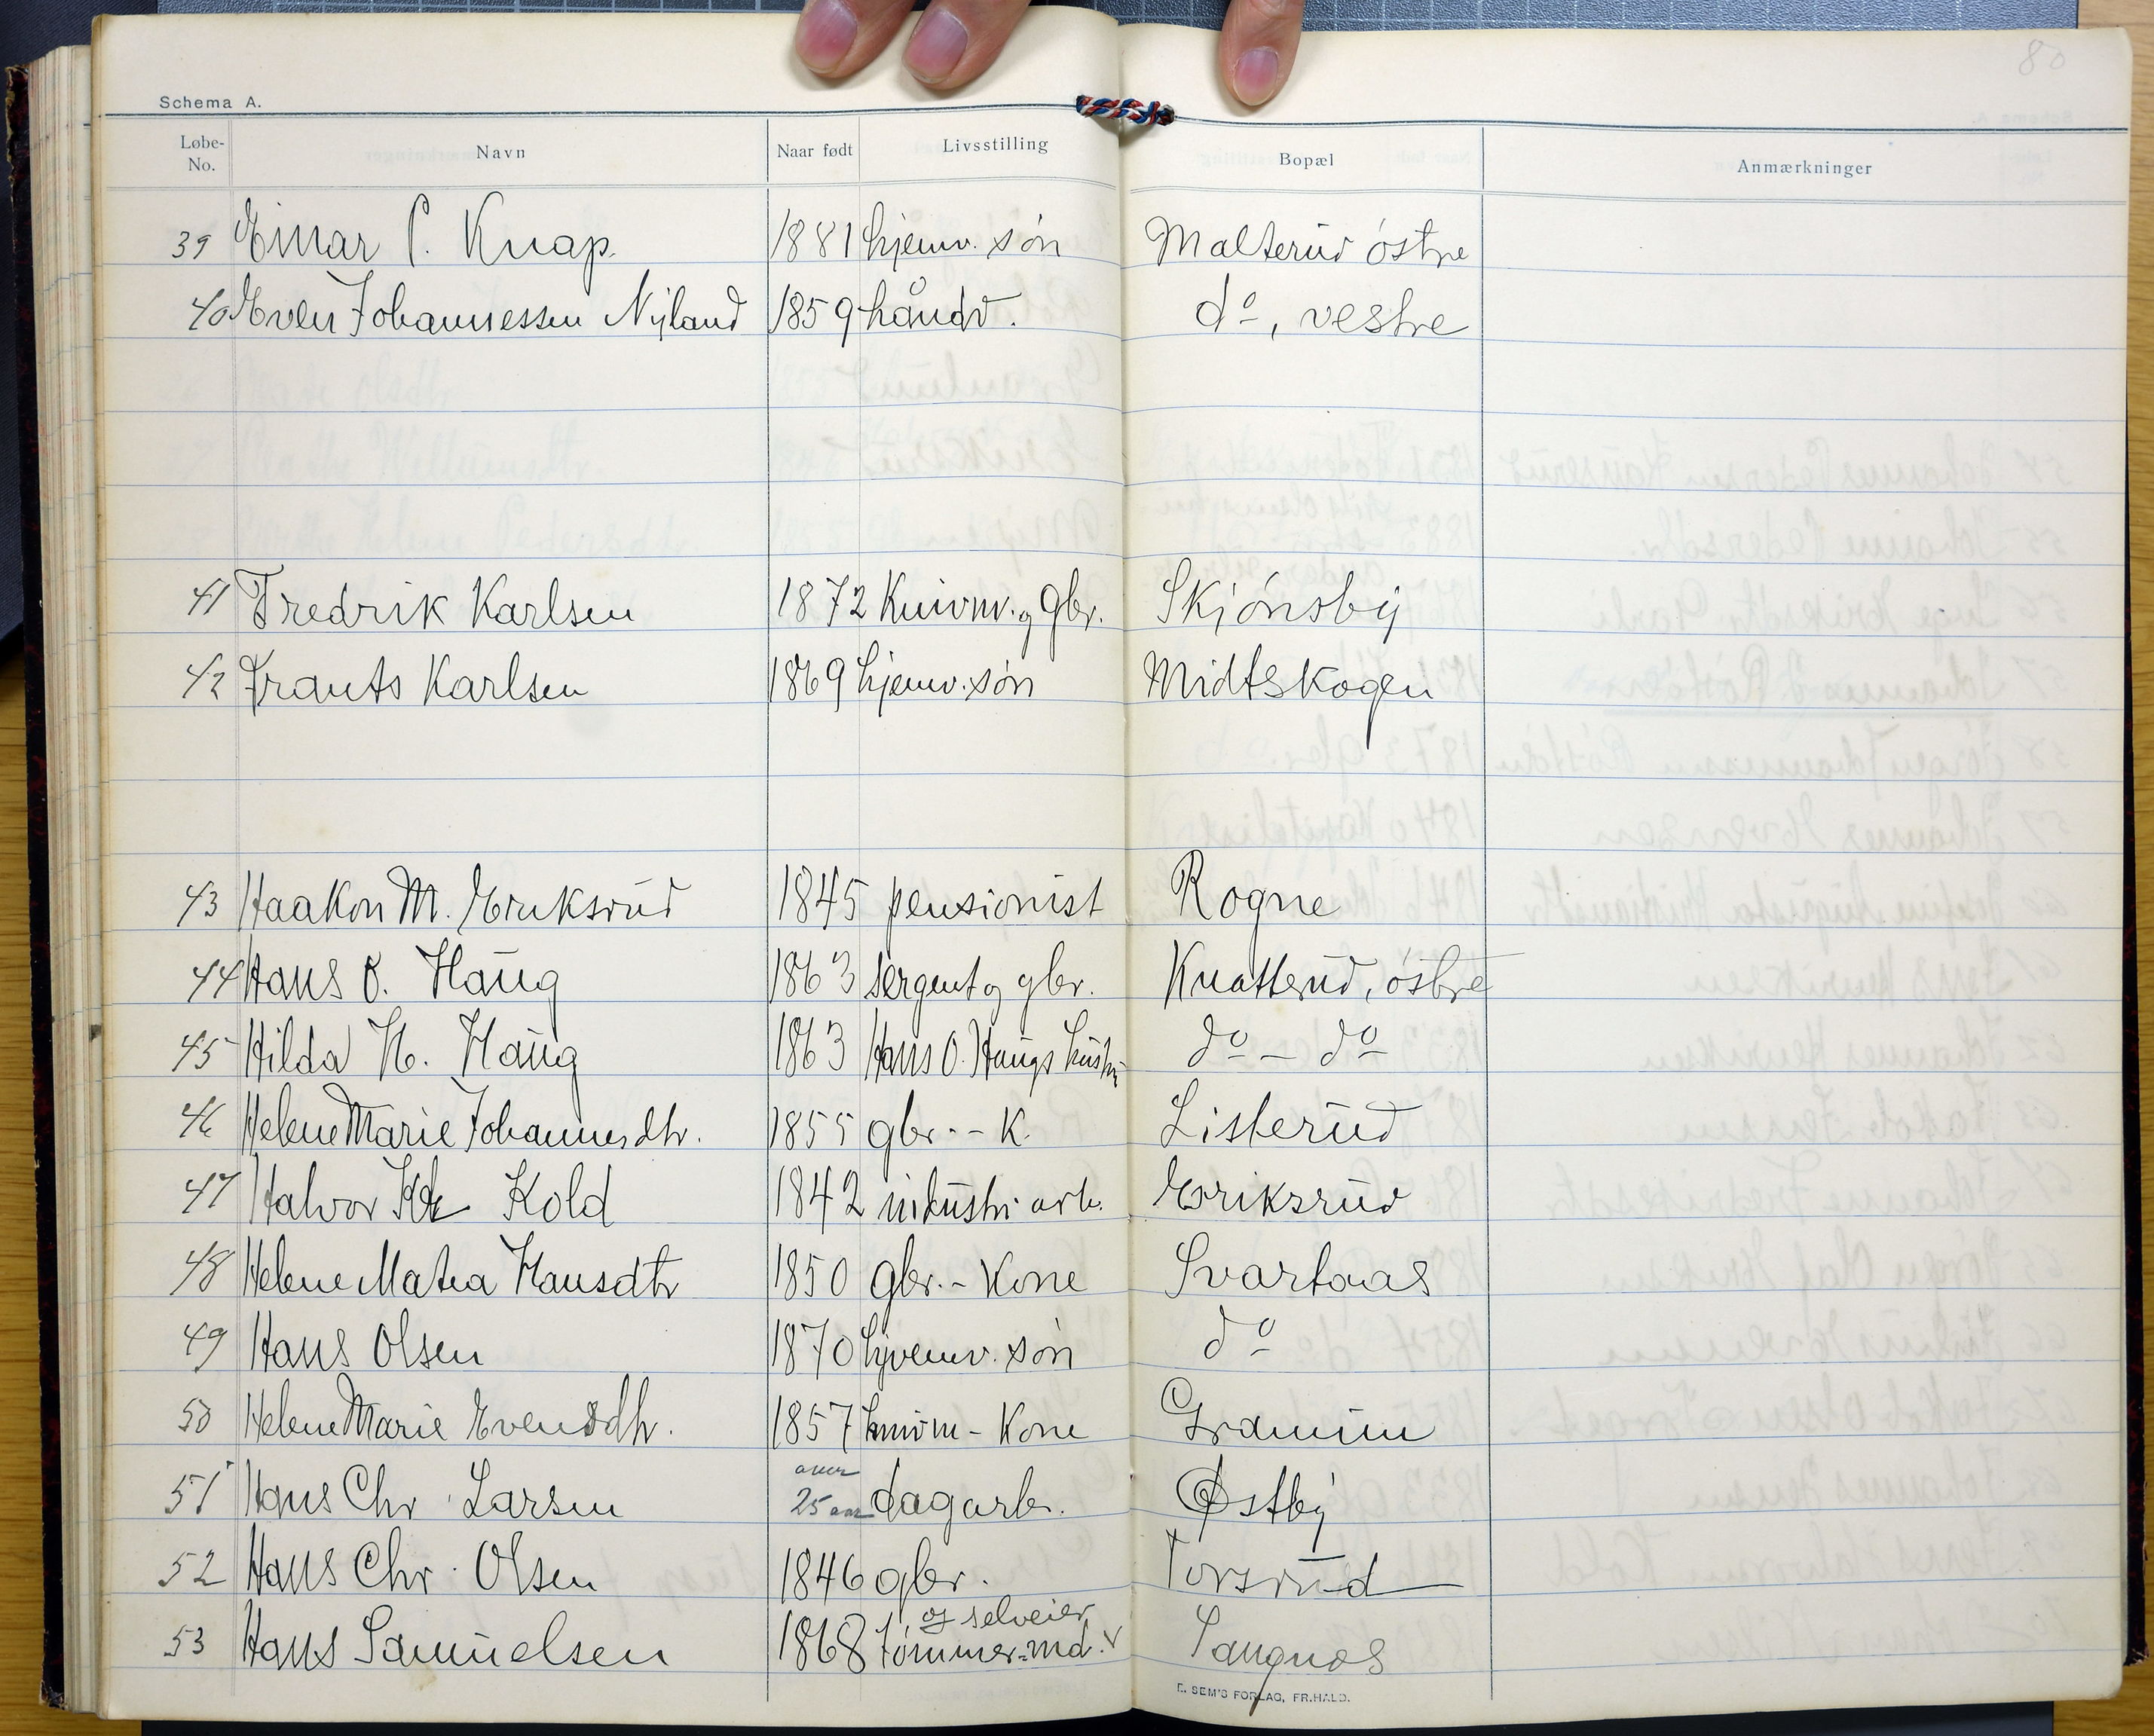 80
Schema A.
Løbe-No. Navn Naar født Livsstilling Bopæl Anmærkninger
39 Einar P. Knap. 1881 hjemv. søn Malterud østre
40 Even Johannessen Nyland 1859 håndv. do, vestre
41 Fredrik Karlsen 1872 Kuivm. og gbr. Skjønsby
42 Frants Karlsen 1869 hjemv. søn Midtskogen
43 Haakon M. Eriksrud 1845 pensionist Rogne
44 Hans O. Haug 1863 sergent og gbr. Knatterud, østre
45 Hilda H. Haug 1863 Hans O. Haugs hustru do - do
46 Helene Marie Johannesdtr. 1855 gbr. - K. Listerud
47 Halvor Kold 1842 industri arb. Eriksrud
48 Helene Matea Hansdtr 1850 gbr. - Kone Svartaas
49 Hans Olsen 1870 hjemv. søn do
50 Helene Marie Evensdtr. 1857 - Kone Gramum
51 Hans Chr. Larsen over 25 aar dagarb. Østby
52 Hans Chr. Olsen 1846 gbr. Torsrud
53 Hans Samuelsen 1868 tømmer-md. og selveier Langnes
E. SEM'S FORLAG, FR.HALD.